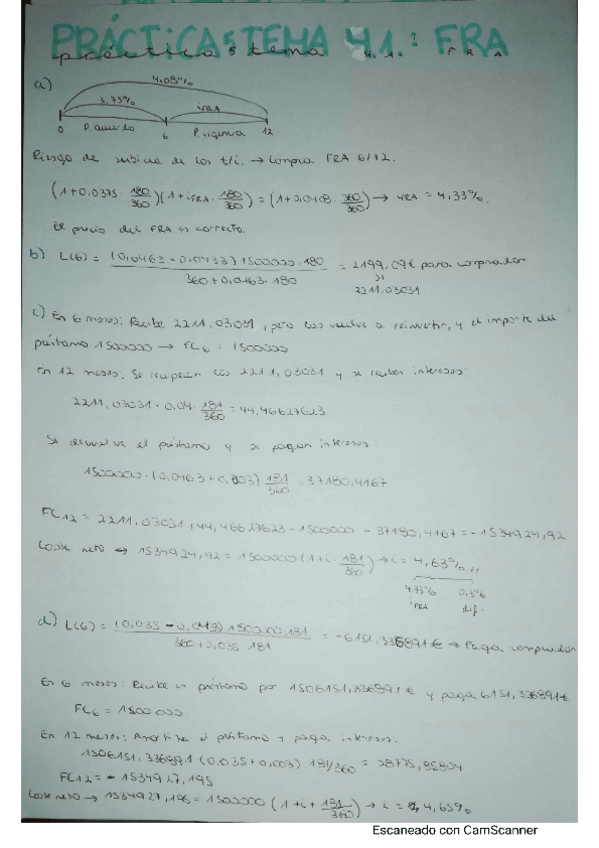 PRÁCTICAS TEMA 4.1.: FRA
prácticas tema 4.1. FRA
a)
4,08%
3,75% iFRA
0 P. acuerdo 6 P. vigencia 12
Riesgo de subida de los t/i. → Compra FRA 6/12.
(1+0,0375· 180/360)(1+iFRA· 180/360) = (1+0,0408· 360/360) → iFRA = 4,33%.
El precio del FRA es correcto.
b) L(6) = (0,0463 - 0,0433) 1500000·180 / 360+0,0463·180 = 2199,07€ para comprador
2211,03031
c) En 6 meses: Recibe 2211,03031, pero los vuelve a reinvertir, y el importe del
préstamo 1500000 → FC6 : 1500000
En 12 meses. Se recuperan los 2211,03031 y se reciben intereses:
2211,03031·0,04· 181/360 = 44,46627623
Se devuelve el préstamo y se pagan intereses:
1500000·(0,0463+0,003) 181/360 = 37180,4167
FC12 = 2211,03031+44,46627623-1500000-37180,4167 = -1534924,92
Coste neto → 1534924,92 = 1500000(1+i· 181/360) → i = 4,63%
4,33% 0,3%
iFRA dif.
d) L(6) = (0,035 - 0,0433) 1500000·181 / 360+0,035·181 = -6151,336891€ → Paga comprador
En 6 meses: Recibe un préstamo por 1506151,336891€ y paga 6151,336891€
FC6 = 1500000.
En 12 meses: Amortiza el préstamo y paga intereses.
1506151,336891(0,035+0,003) 181/360 = 28775,85804
FC12 = -1534927,195
Coste neto → 1534927,195 = 1500000(1+i+ 181/360) → i = 4,63%
Escaneado con CamScanner